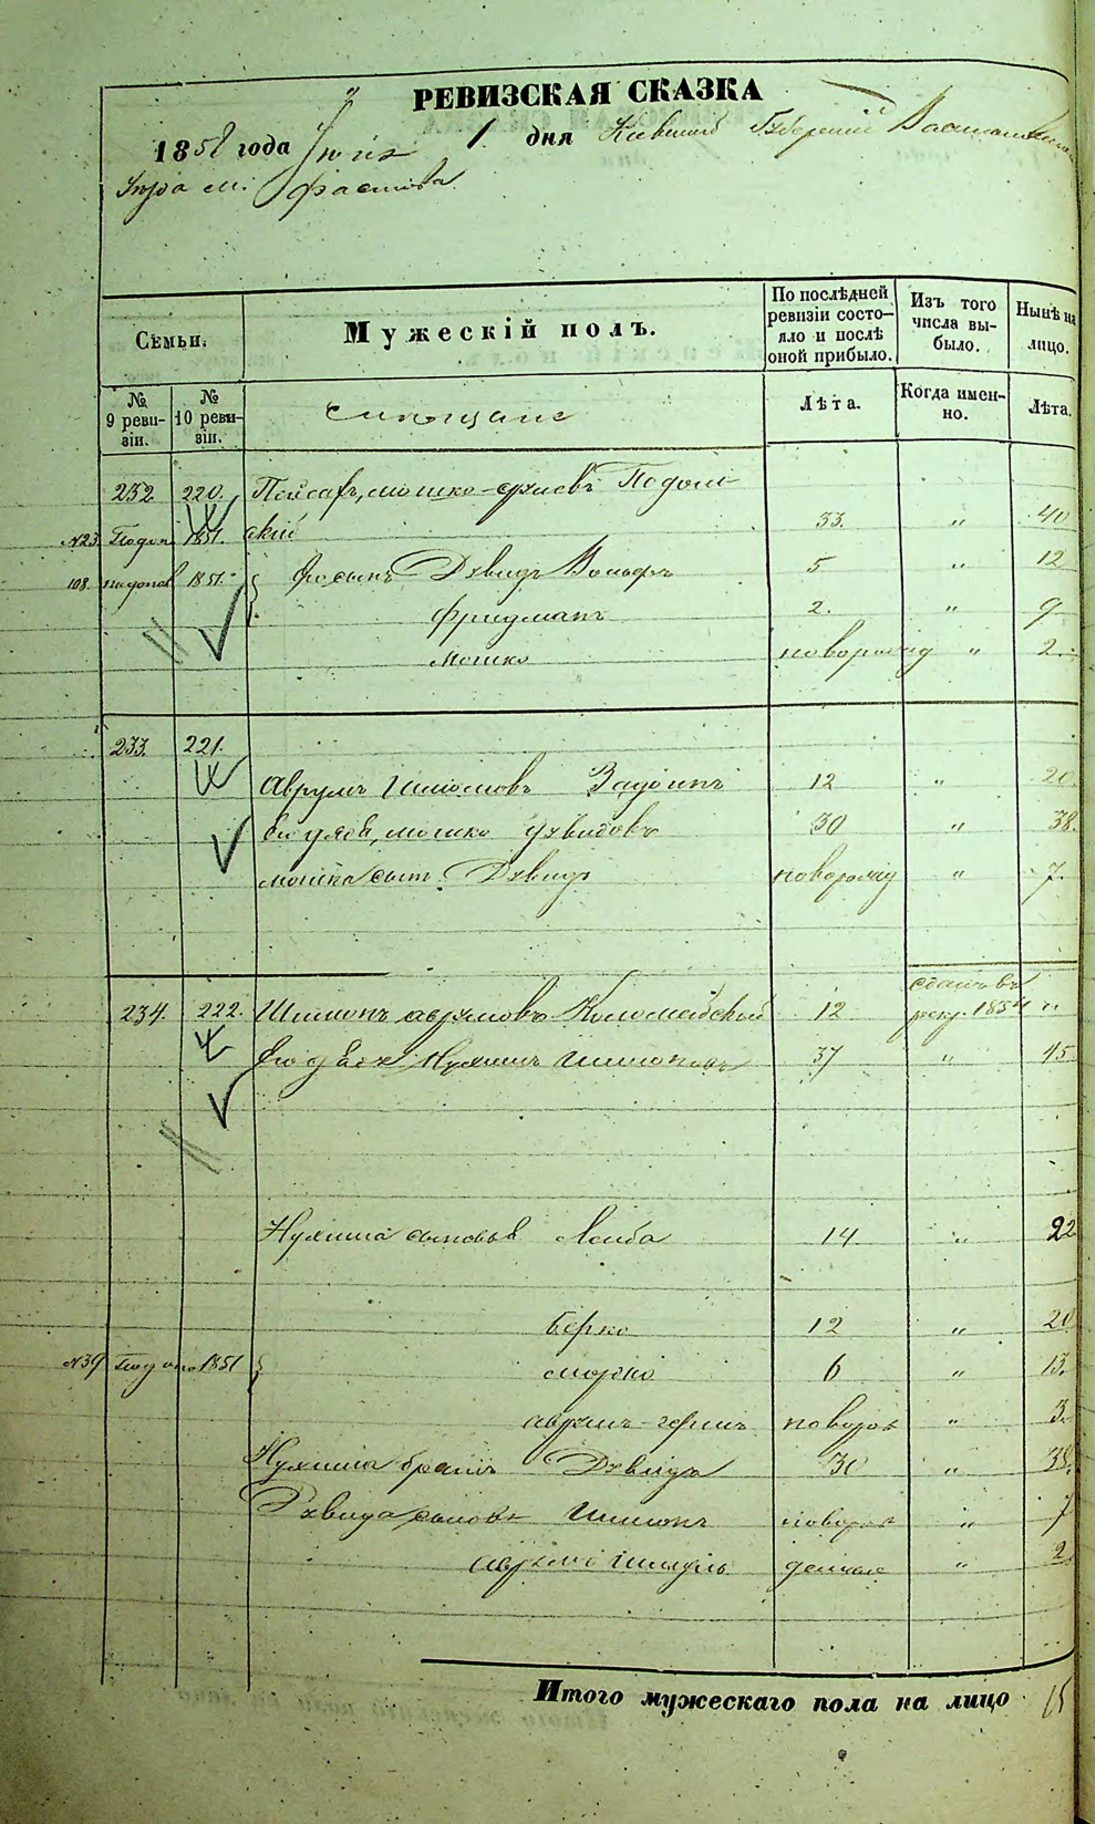 РЕВИЗСКАЯ СКАЗКА
1858 года Іюня 1 дня Кіевской Губерніи Васильковскаго
Уѣзда м: Фастова
Семьи.
Мужескій полъ.
По послѣдней ревизіи состояло и послѣ оной прибыло.
Изъ того числа выбыло.
Нынѣ на лицо.
№ 9 ревизіи.
№ 10 ревизіи.
Лѣта.
Когда именно.
Лѣта.
232. 220. мошко Подоль
№23 1851. скій 33. " 40
108. 1851. Дувидъ Вольфъ 5 " 12
Фридманъ 2. " 9
Мошко новорожд " 2.
233. 221.
Аврумъ Шлiомовъ 12 " 20.
мошко Дувидовъ 30 " 38.
мошка сынъ Дувидъ новорожд " 7.
сданъ въ
234. 222. Шимонъ Аврумовъ Коломейскій 12 рекр. 1854 "
Нухимъ Шимоновъ 37 " 45
Нухима сыновья Лейба 14 " 22
Берко 12 " 20
№39 1851 Мордко 6 " 13.
Аврумъ-Гершъ новорож " 3.
Нухима братъ Дувидъ 30 " 38.
Дувида сыновья Шимонъ новорож " 7
Аврумъ Шмуль " 2.
Итого мужескаго пола на лицо 15